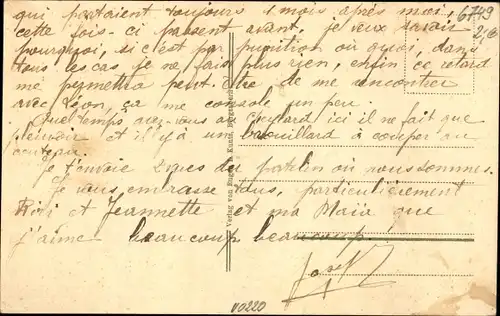 qui partaient toujours 1 mois après moi,
cette fois-ci passent avant, je veux savoir
pourquoi, si c'est par punition ou quoi, dans
tous les cas je ne fais plus rien, enfin ce retard
me permettra peut-être de me rencontrer
avec Léon, ça me console un peu.
Quel temps avez-vous au ici il ne fait que
pleuvoir et il y a un brouillard à couper au
couteau.
Je t'envoie 2 vues du patelin où nous sommes.
Je vous embrasse tous, particulièrement
Riri et Jeannette et ma Maïa que
j'aime beaucoup beaucoup.
Josef
6749
Verlag von Kunst
V0220